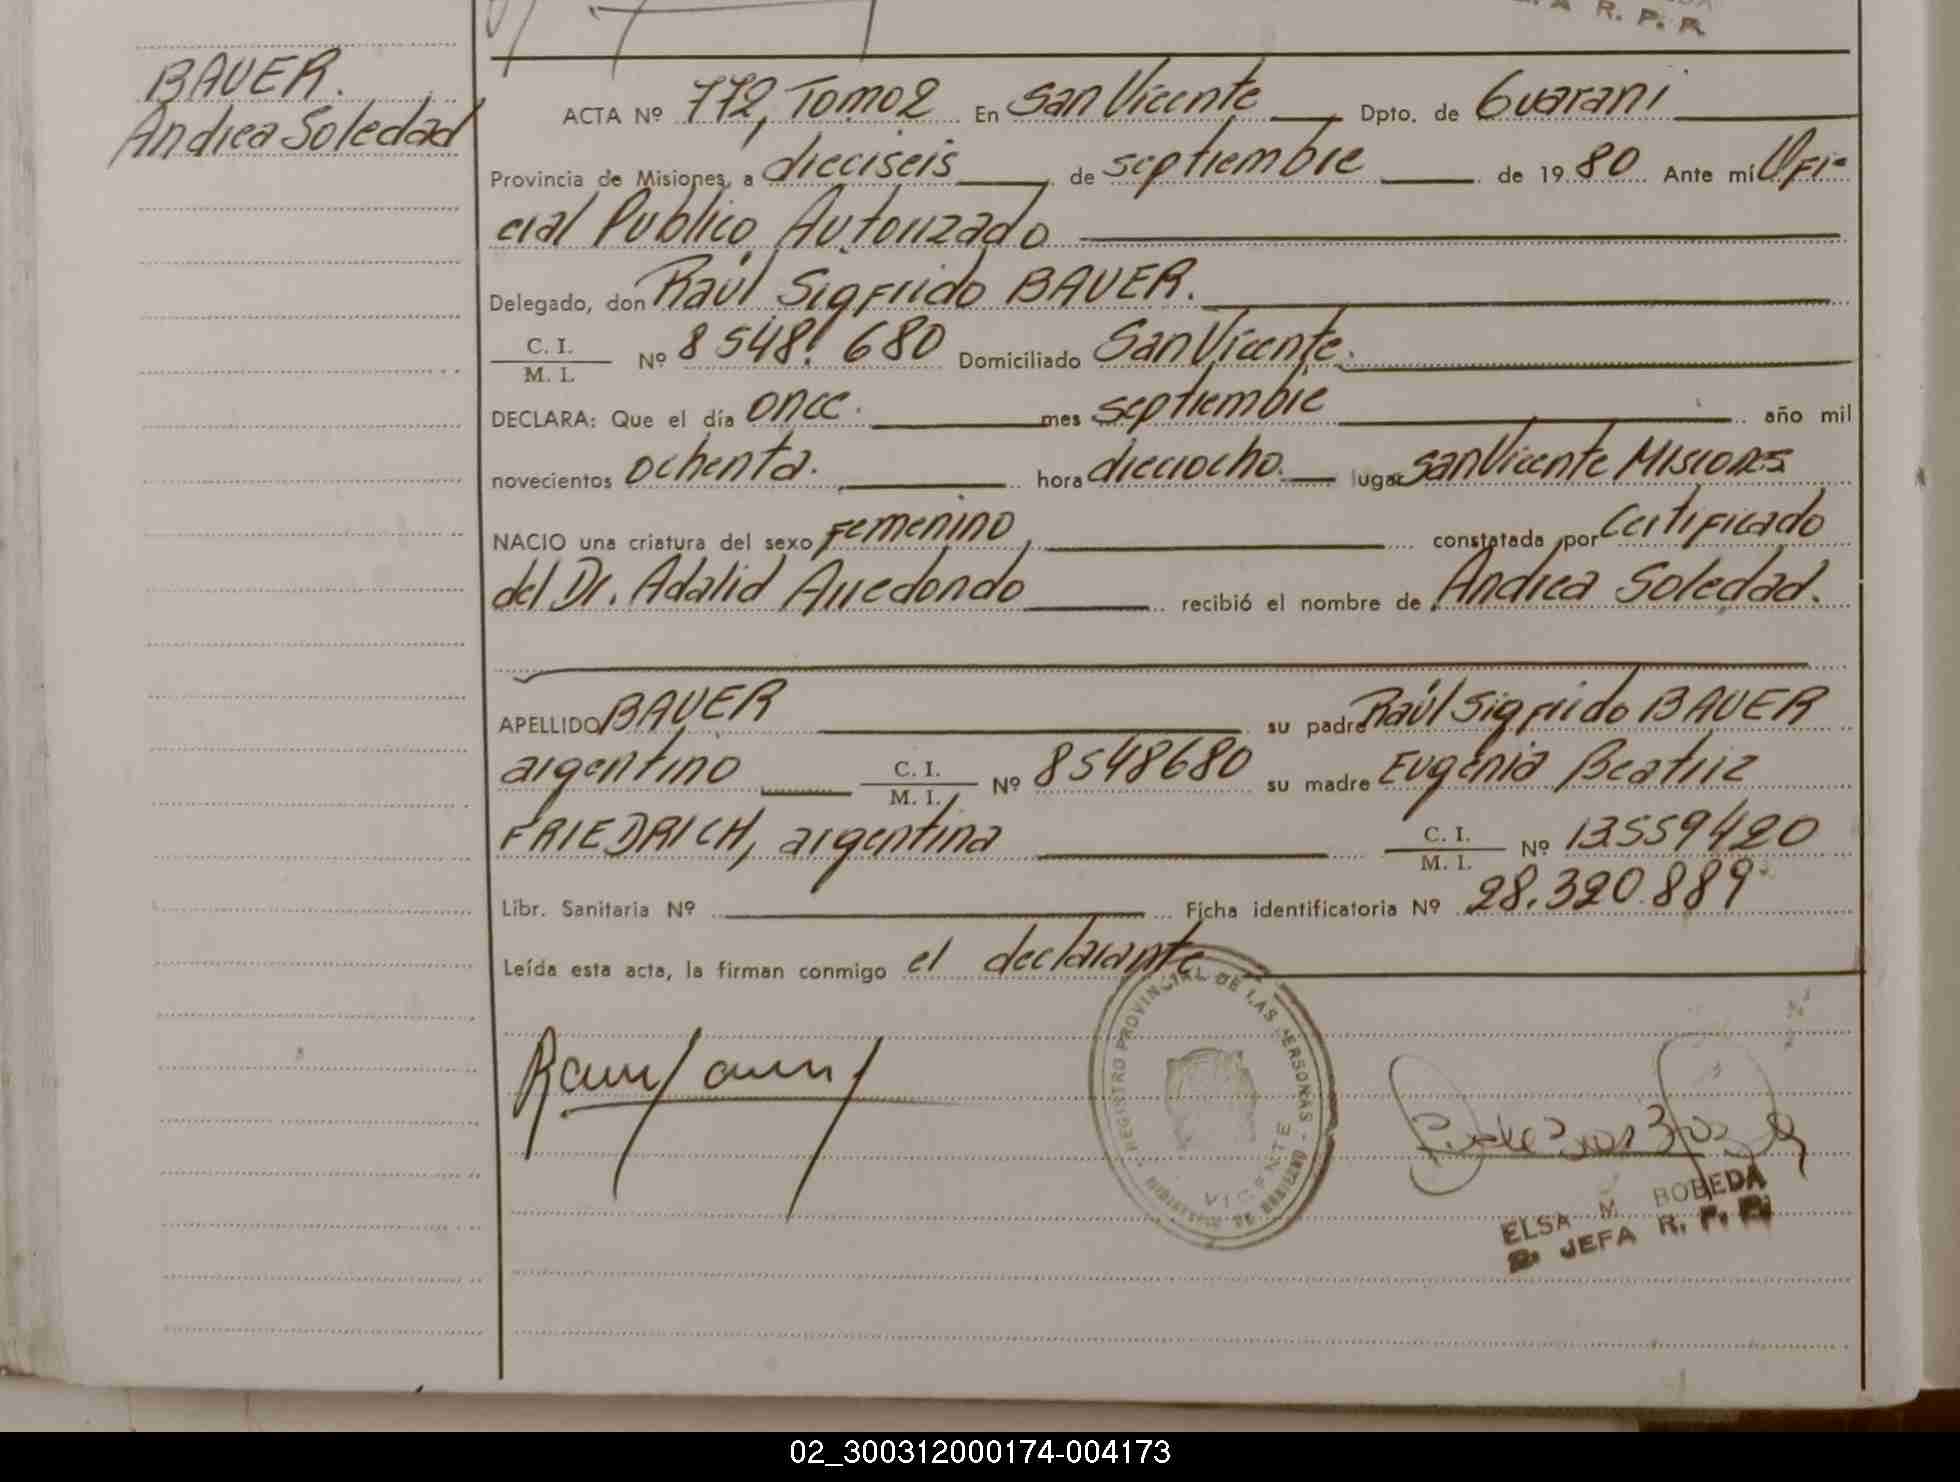 R. P. R
BAUER.
Andrea Soledad
ACTA Nº 772, Tomo 2 En San Vicente Dpto. de Guarani
Provincia de Misiones, a dieciseis de septiembre de 1980 Ante mi Ofi-
cial Publico Autorizado
Delegado, don Raúl Sigfrido BAUER.
C. I.
M. I. Nº 8548.680 Domiciliado San Vicente.
DECLARA: Que el día once. mes septiembre año mil
novecientos ochenta. hora dieciocho. lugar San Vicente Misiones
NACIO una criatura del sexo femenino, constatada por Certificado
del Dr. Adalid Arredondo recibió el nombre de Andrea Soledad.
APELLIDO BAUER su padre Raúl Sigfrido BAUER
argentino C. I.
M. I. Nº 8548680 su madre Eugenia Beatriz
FRIEDRICH, argentina C. I.
M. I. Nº 13559420
Libr. Sanitaria Nº Ficha identificatoria Nº 28.320.889
Leída esta acta, la firman conmigo el declarante
REGISTRO PROVINCIAL DE LAS PERSONAS
VICENTE
ELSA M BOBEDA
JEFA R. P. P.
02_300312000174-004173